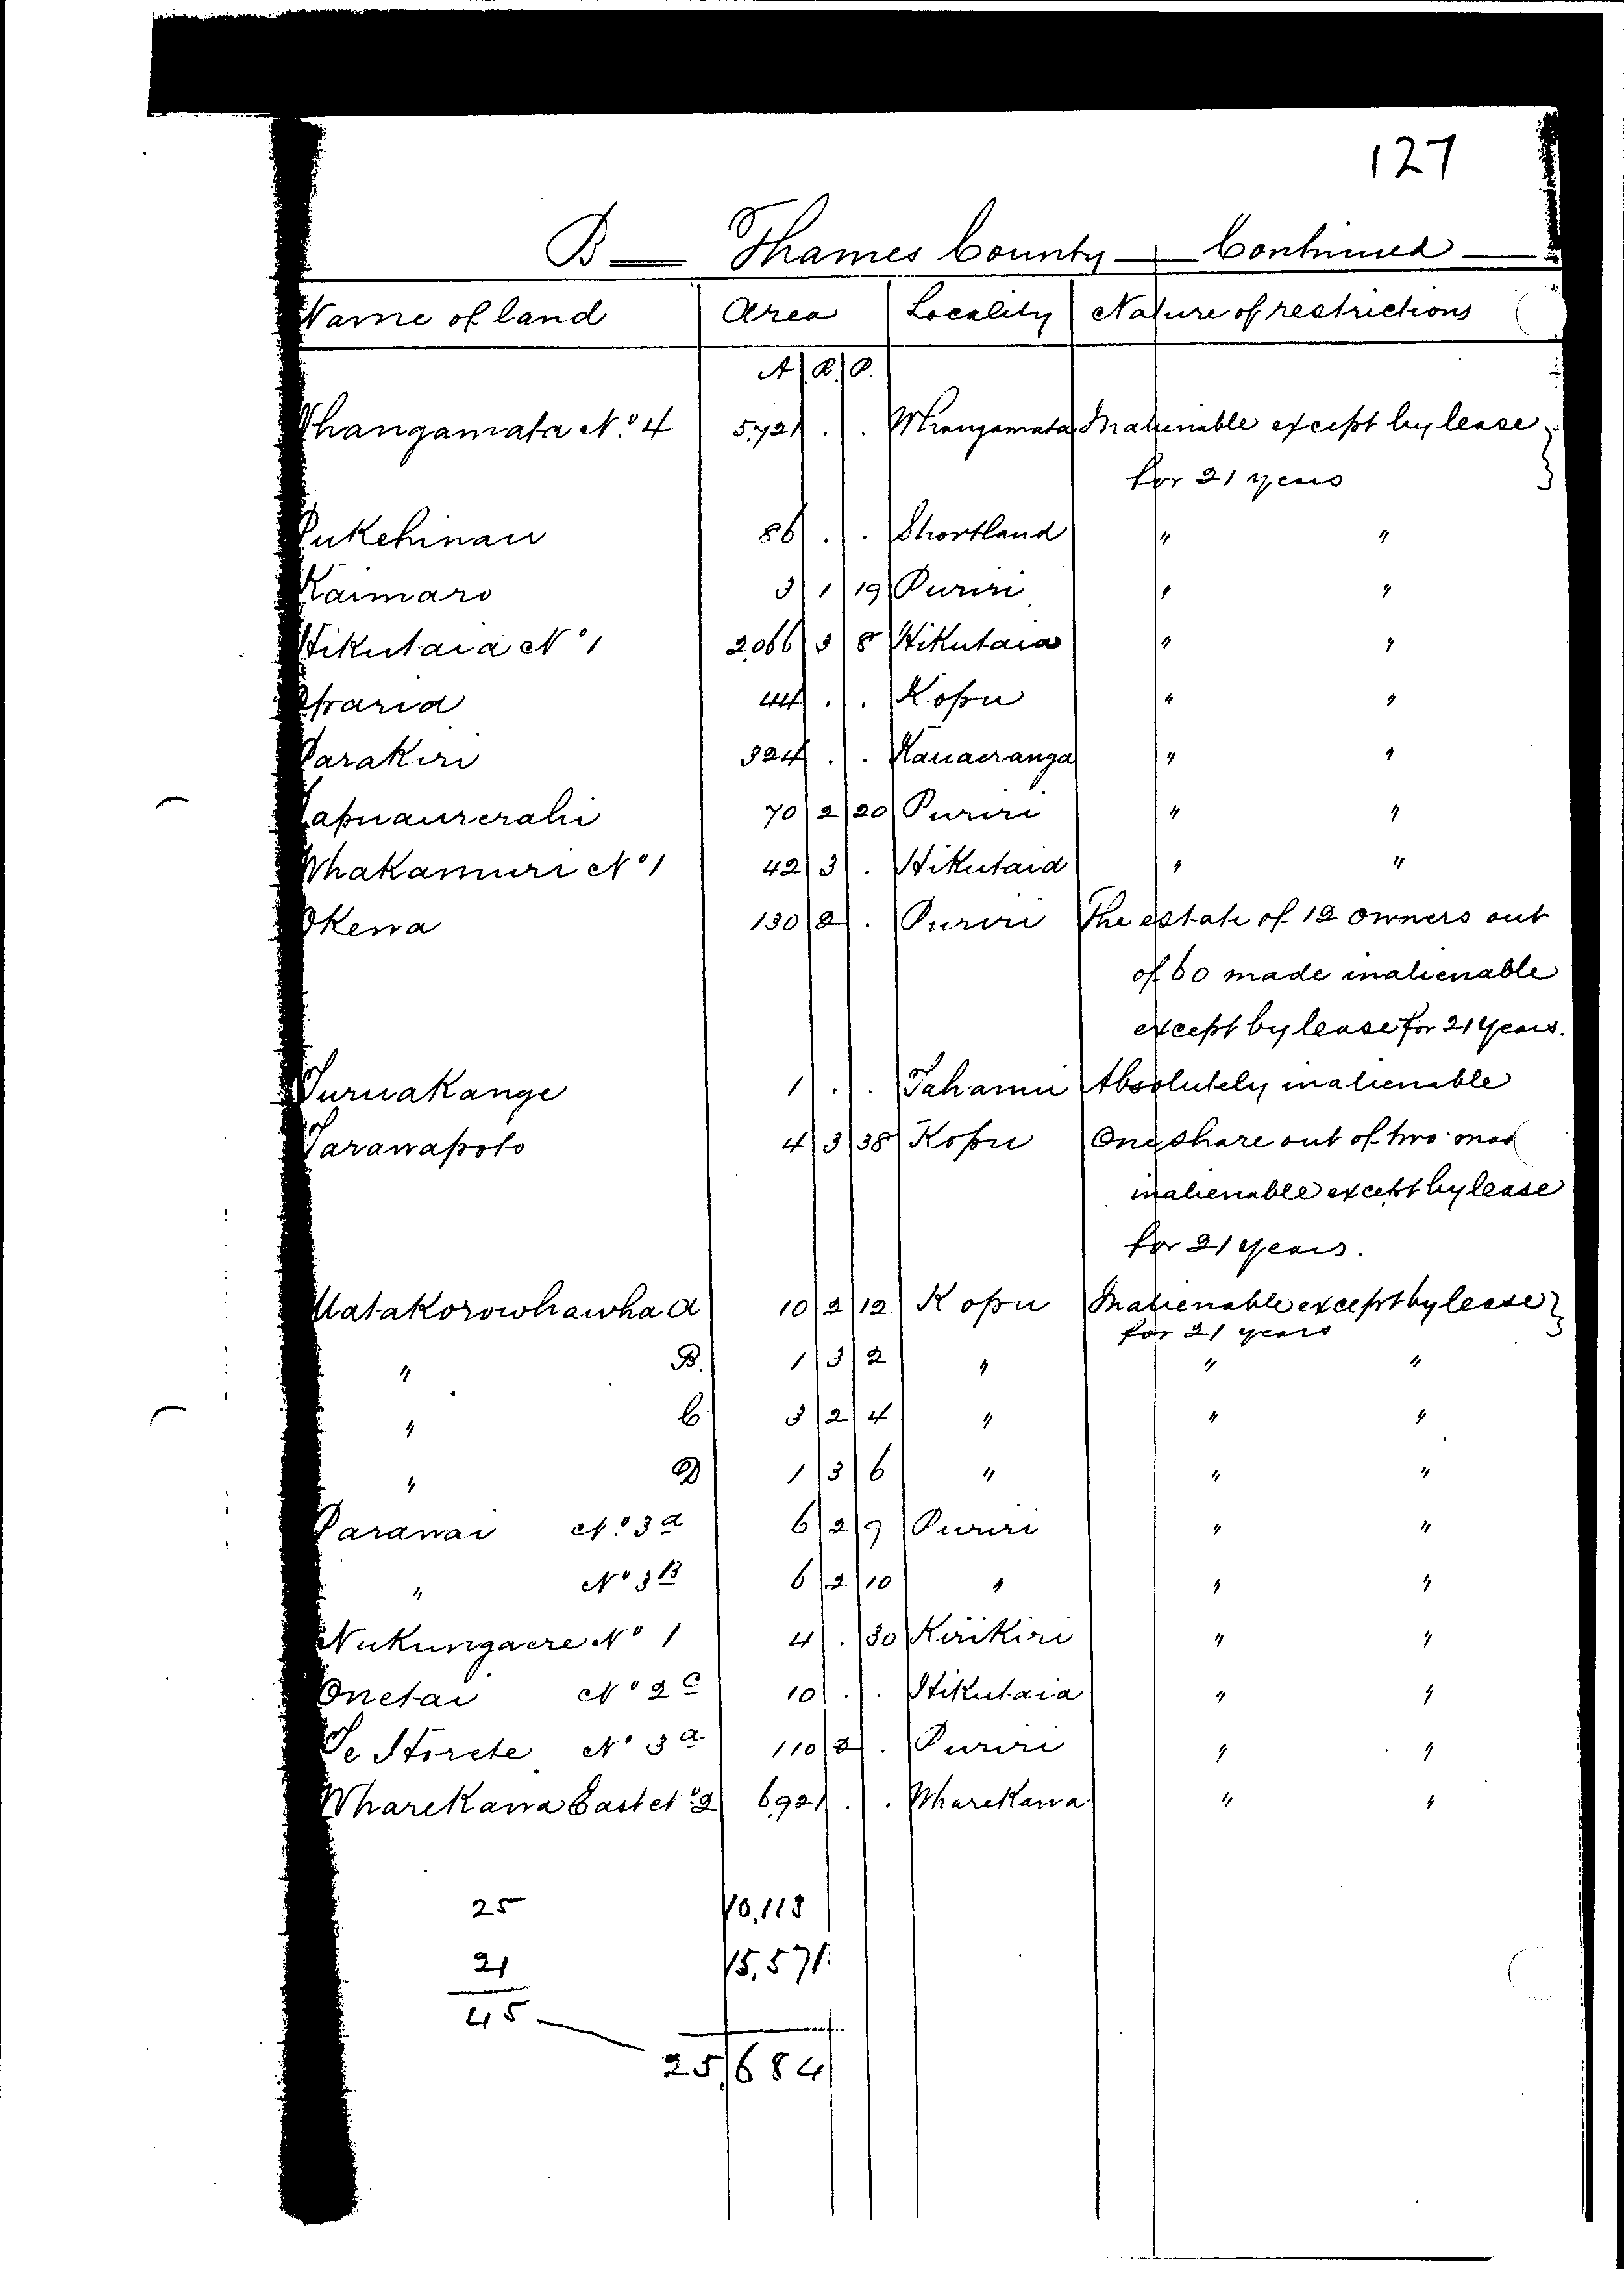 127
B — Thames County — Continued —
Name of land Area Locality Nature of restrictions
A. R. P.
Whangamata No. 4 5,721 . . Whangamata Inalienable except by lease
for 21 years
Pukehinau 86 . . Shortland " "
Kaimaro 3 1 19 Puriri " "
Hikutaia No 1 2,066 3 8 Hikutaia " "
44 . . Kopu " "
Parakiri 324 . . Kauaeranga " "
70 2 20 Puriri " "
Whakamuri No 1 42 3 . Hikutaia " "
Okewa 130 2 . Puriri The estate of 12 owners out
of 60 made inalienable
except by lease for 21 years.
Turuakange 1 . . Tahanui Absolutely inalienable
Tarawapoto 4 3 38 Kopu One share out of two mad
inalienable except by lease
for 21 years.
Matakorowhawha A 10 2 12 Kopu Inalienable except by lease
for 21 years
" B. 1 3 2 " " "
" C 3 2 4 " " "
" D 1 3 6 " " "
Parawai No. 3A 6 2 9 Puriri " "
" No 3B 6 2 10 " " "
Nukungaere No 1 4 . 30 Kirikiri " "
Onetai No 2C 10 . . Hikutaia " "
Te Horete No 3A 110 2 . Puriri " "
Wharekawa East No. 2 6,921 . . Wharekawa " "
25 10,113
21 15,571
45 25,684